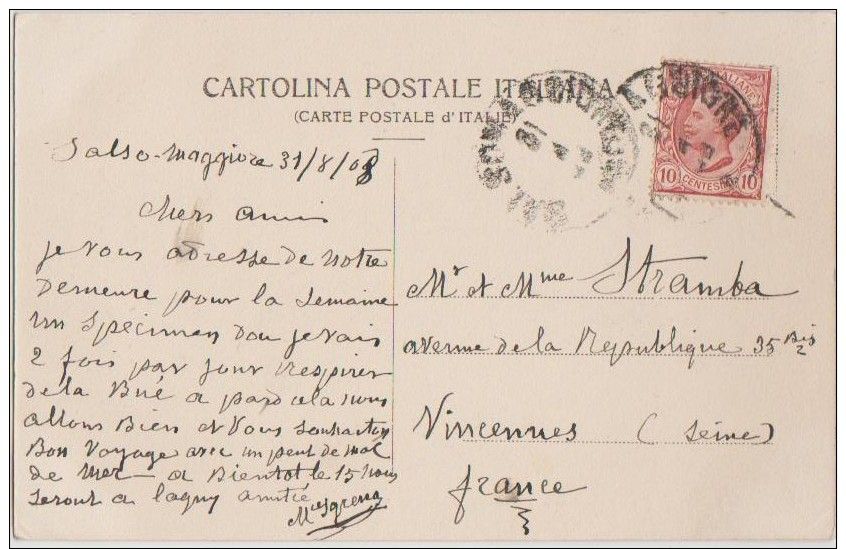 CARTOLINA POSTALE ITALIANA
(CARTE POSTALE d'ITALIE)
Salso-Maggiore 31/8/08
Chers amis
je vous adresse de notre
demeure pour la semaine
un specimen dou je vais
2 fois par jour respirer
de la Bué a pard cela nous
allons Bien et vous souhaiton
Bon voyage avec un peut de mal
de mer - a Bientot le 15 nous
seront a lagny amitié
Mr et Mme Stramba
avenue de la Republique 35 Bis
2
Vincennes (Seine)
france
ITALIANE
10 CENTESIMI 10